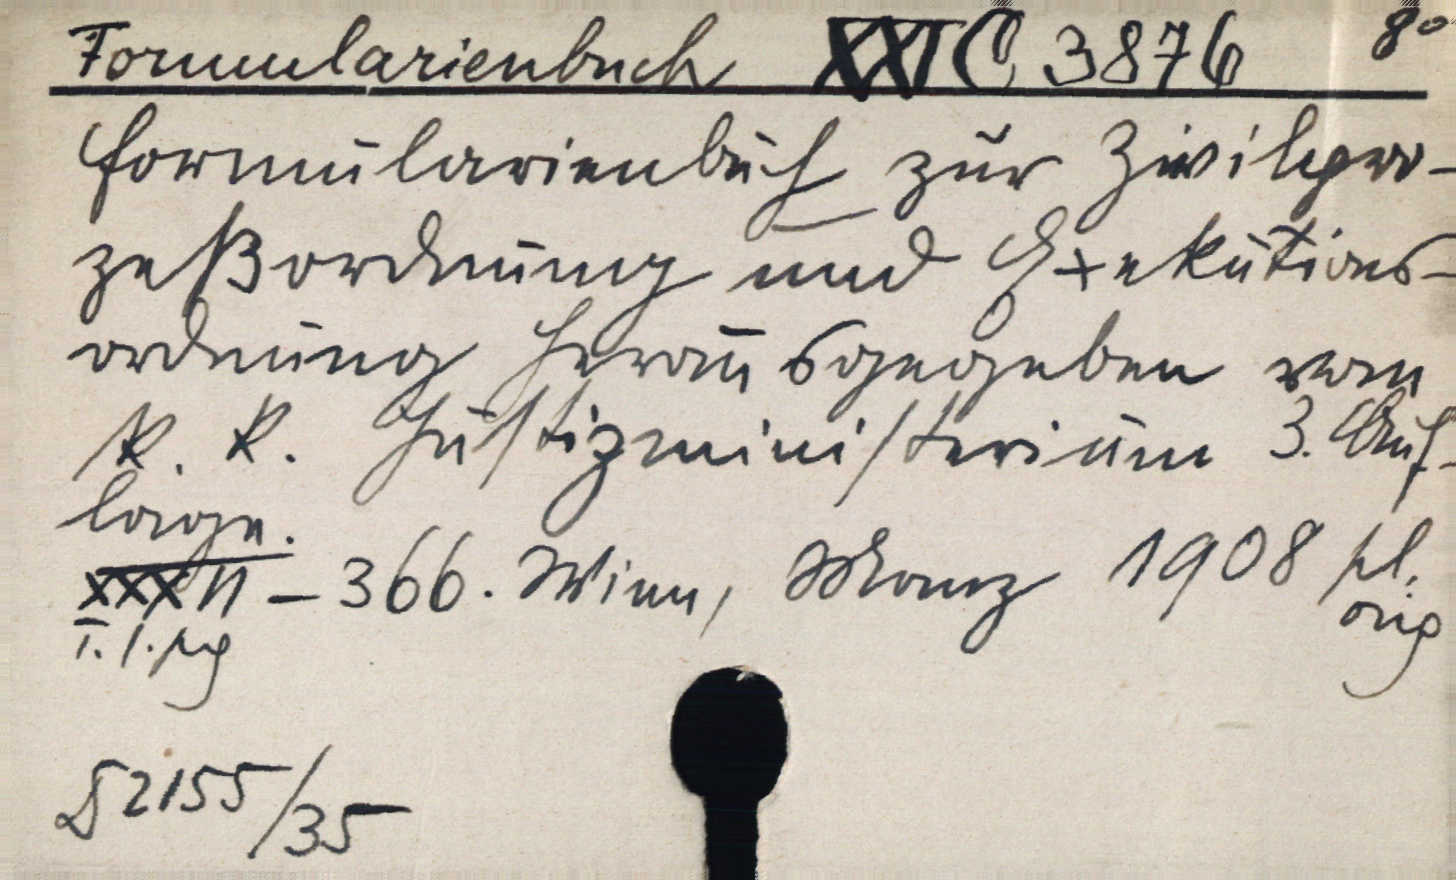 Formularienbuch XXI C 3876 8°
Formularienbuch zur Zivilpro-
zeßordnung und Exekutions-
ordnung herausgegeben vom
k. k. Justizministerium 3. Auf-
lage.
XXXII – 366. Wien, Manz 1908 pl.
orig
§ 2155/35